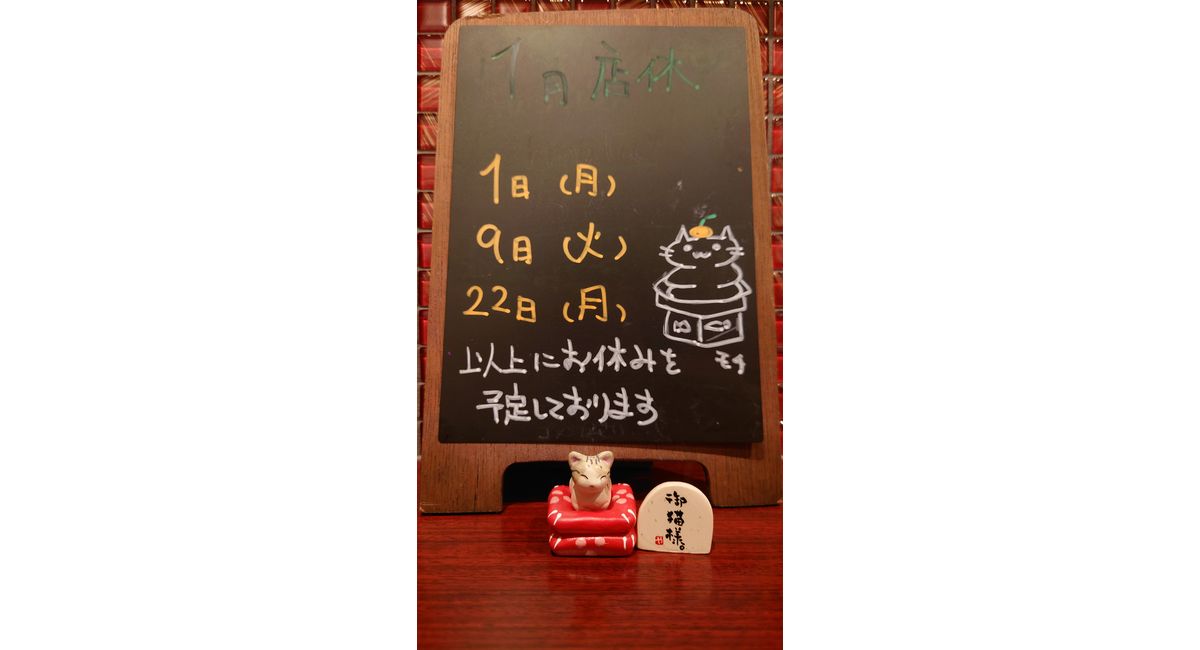 1月 店休
1日(月)
9日(火)
22日(月)
以上にお休みを
予定しております
モチ
御猫様。